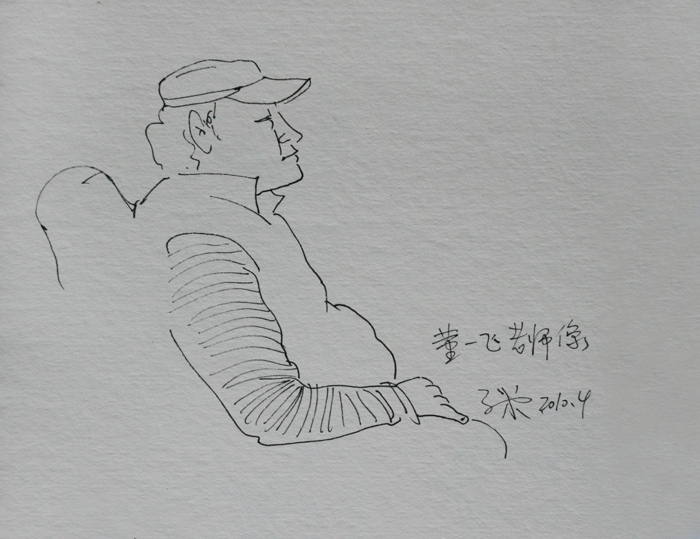 董一飞老师像
子 2010.4